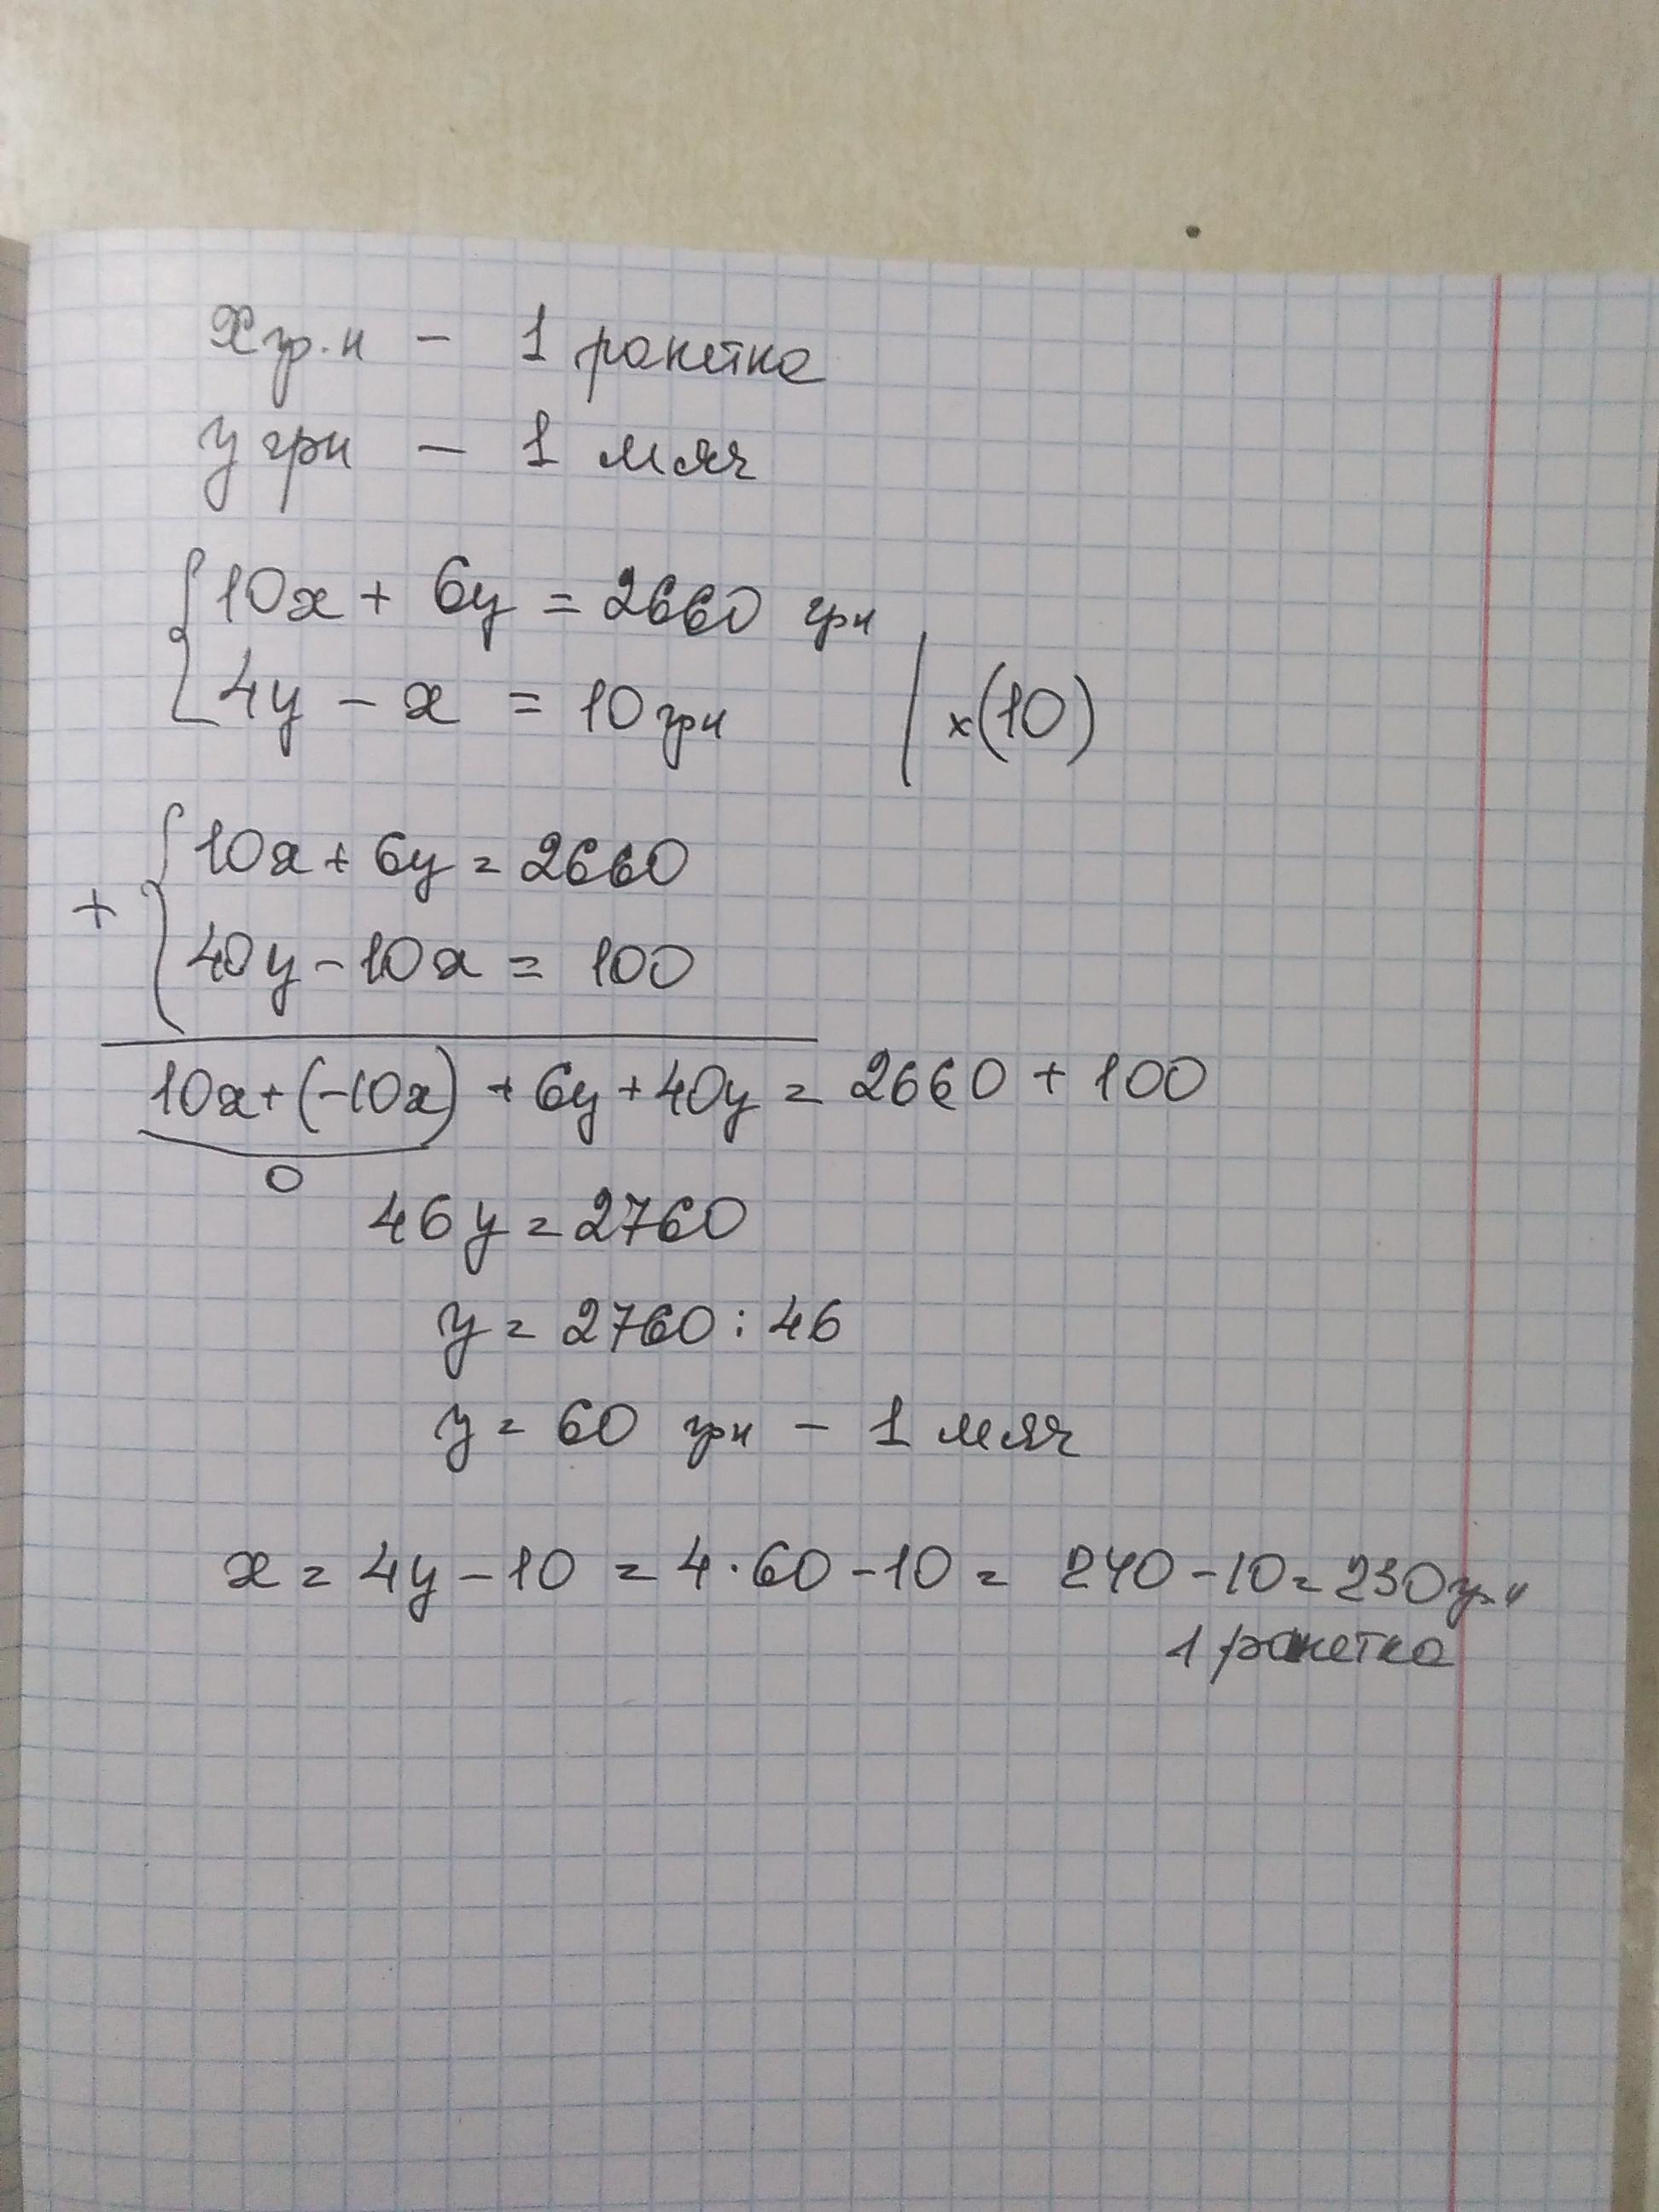 х гр.н – 1 ракетка
у грн – 1 мяч
10х + 6у = 2660 грн
4у – х = 10 грн | х(10)
10х + 6у = 2660
+
40у – 10х = 100
10х + (-10х) + 6у + 40у = 2660 + 100
0
46у = 2760
у = 2760 : 46
у = 60 грн – 1 мяч
х = 4у – 10 = 4·60 – 10 = 240 – 10 = 230 грн
1 ракетка